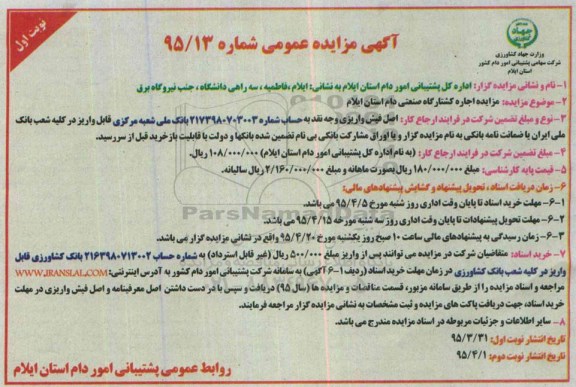 نوبت اول
آگهی مزایده عمومی شماره ۹۵/۱۳
وزارت جهاد کشاورزی
شرکت سهامی پشتیبانی امور دام کشور
استان ایلام
۱- نام و نشانی مزایده گزار: اداره کل پشتیبانی امور دام استان ایلام به نشانی: ایلام ،فاطمیه ، سه راهی دانشگاه ، جنب نیروگاه برق
۲- موضوع مزایده: مزایده اجاره کشتارگاه صنعتی دام استان ایلام
۳- نوع و مبلغ تضمین شرکت در فرایند ارجاع کار: اصل فیش واریزی وجه نقد به حساب شماره ۲۱۷۳۹۸۰۷۰۳۰۰۳ بانک ملی شعبه مرکزی قابل واریز در کلیه شعب بانک
ملی ایران یا ضمانت نامه بانکی به نام مزایده گزار و یا اوراق مشارکت بانکی بی نام تضمین شده بانکها و دولت با قابلیت بازخرید قبل از سررسید.
۴- مبلغ تضمین شرکت در فرایند ارجاع کار: (به نام اداره کل پشتیبانی امور دام استان ایلام) ۱۰۸/۰۰۰/۰۰۰ ریال.
۵- قیمت پایه کارشناسی: مبلغ ۱۸۰/۰۰۰/۰۰۰ ریال بصورت ماهانه و مبلغ ۲/۱۶۰/۰۰۰/۰۰۰ ریال سالیانه.
۶- زمان دریافت اسناد ، تحویل پیشنهاد و گشایش پیشنهادهای مالی:
۶-۱- مهلت خرید اسناد تا پایان وقت اداری روز شنبه مورخ ۹۵/۴/۵ می باشد.
۶-۲- مهلت تحویل پیشنهادات تا پایان وقت اداری روز سه شنبه مورخه ۹۵/۴/۱۵ می باشد.
۶-۳- زمان رسیدگی به پیشنهادهای مالی ساعت ۱۰ صبح روز یکشنبه مورخ ۹۵/۴/۲۰ واقع در نشانی مزایده گزار می باشد.
۷- خرید اسناد: متقاضیان شرکت در مزایده می توانند پس از واریز مبلغ ۵۰۰/۰۰۰ ریال (غیر قابل استرداد) به شماره حساب ۲۱۶۳۹۸۰۷۱۳۰۰۲ بانک کشاورزی قابل
واریز در کلیه شعب بانک کشاورزی در زمان مهلت خرید اسناد (ردیف ۱-۶ آگهی) به سامانه شرکت پشتیبانی امور دام کشور به آدرس اینترنتی: WWW.IRANSLAL.COM
مراجعه و اسناد مزایده را از طریق سامانه مزبور، قسمت مناقصات و مزایده ها (سال ۹۵) دریافت و سپس با در دست داشتن اصل معرفینامه و اصل فیش واریزی در مهلت
خرید اسناد، جهت دریافت پاکت های مزایده و ثبت مشخصات به نشانی مزایده گزار مراجعه فرمایند.
۸- سایر اطلاعات و جزئیات مربوطه در اسناد مزایده مندرج می باشد.
تاریخ انتشار نوبت اول: ۹۵/۳/۳۱
تاریخ انتشار نوبت دوم: ۹۵/۴/۱
روابط عمومی پشتیبانی امور دام استان ایلام